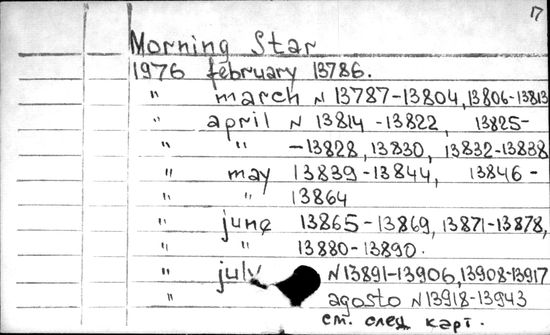 17
Morning Star
1976 february 13786.
" march N 13787-13804, 13806-13813
" april N 13814 -13822, 13825-
" " -13828, 13830, 13832-13838
" may 13839-13844, 13846 -
" " 13864
" june 13865-13869, 13871-13878,
" " 13880-13890.
" july N 13891-13906, 13908-13917
" agosto N 13918-13943
см. след карт.